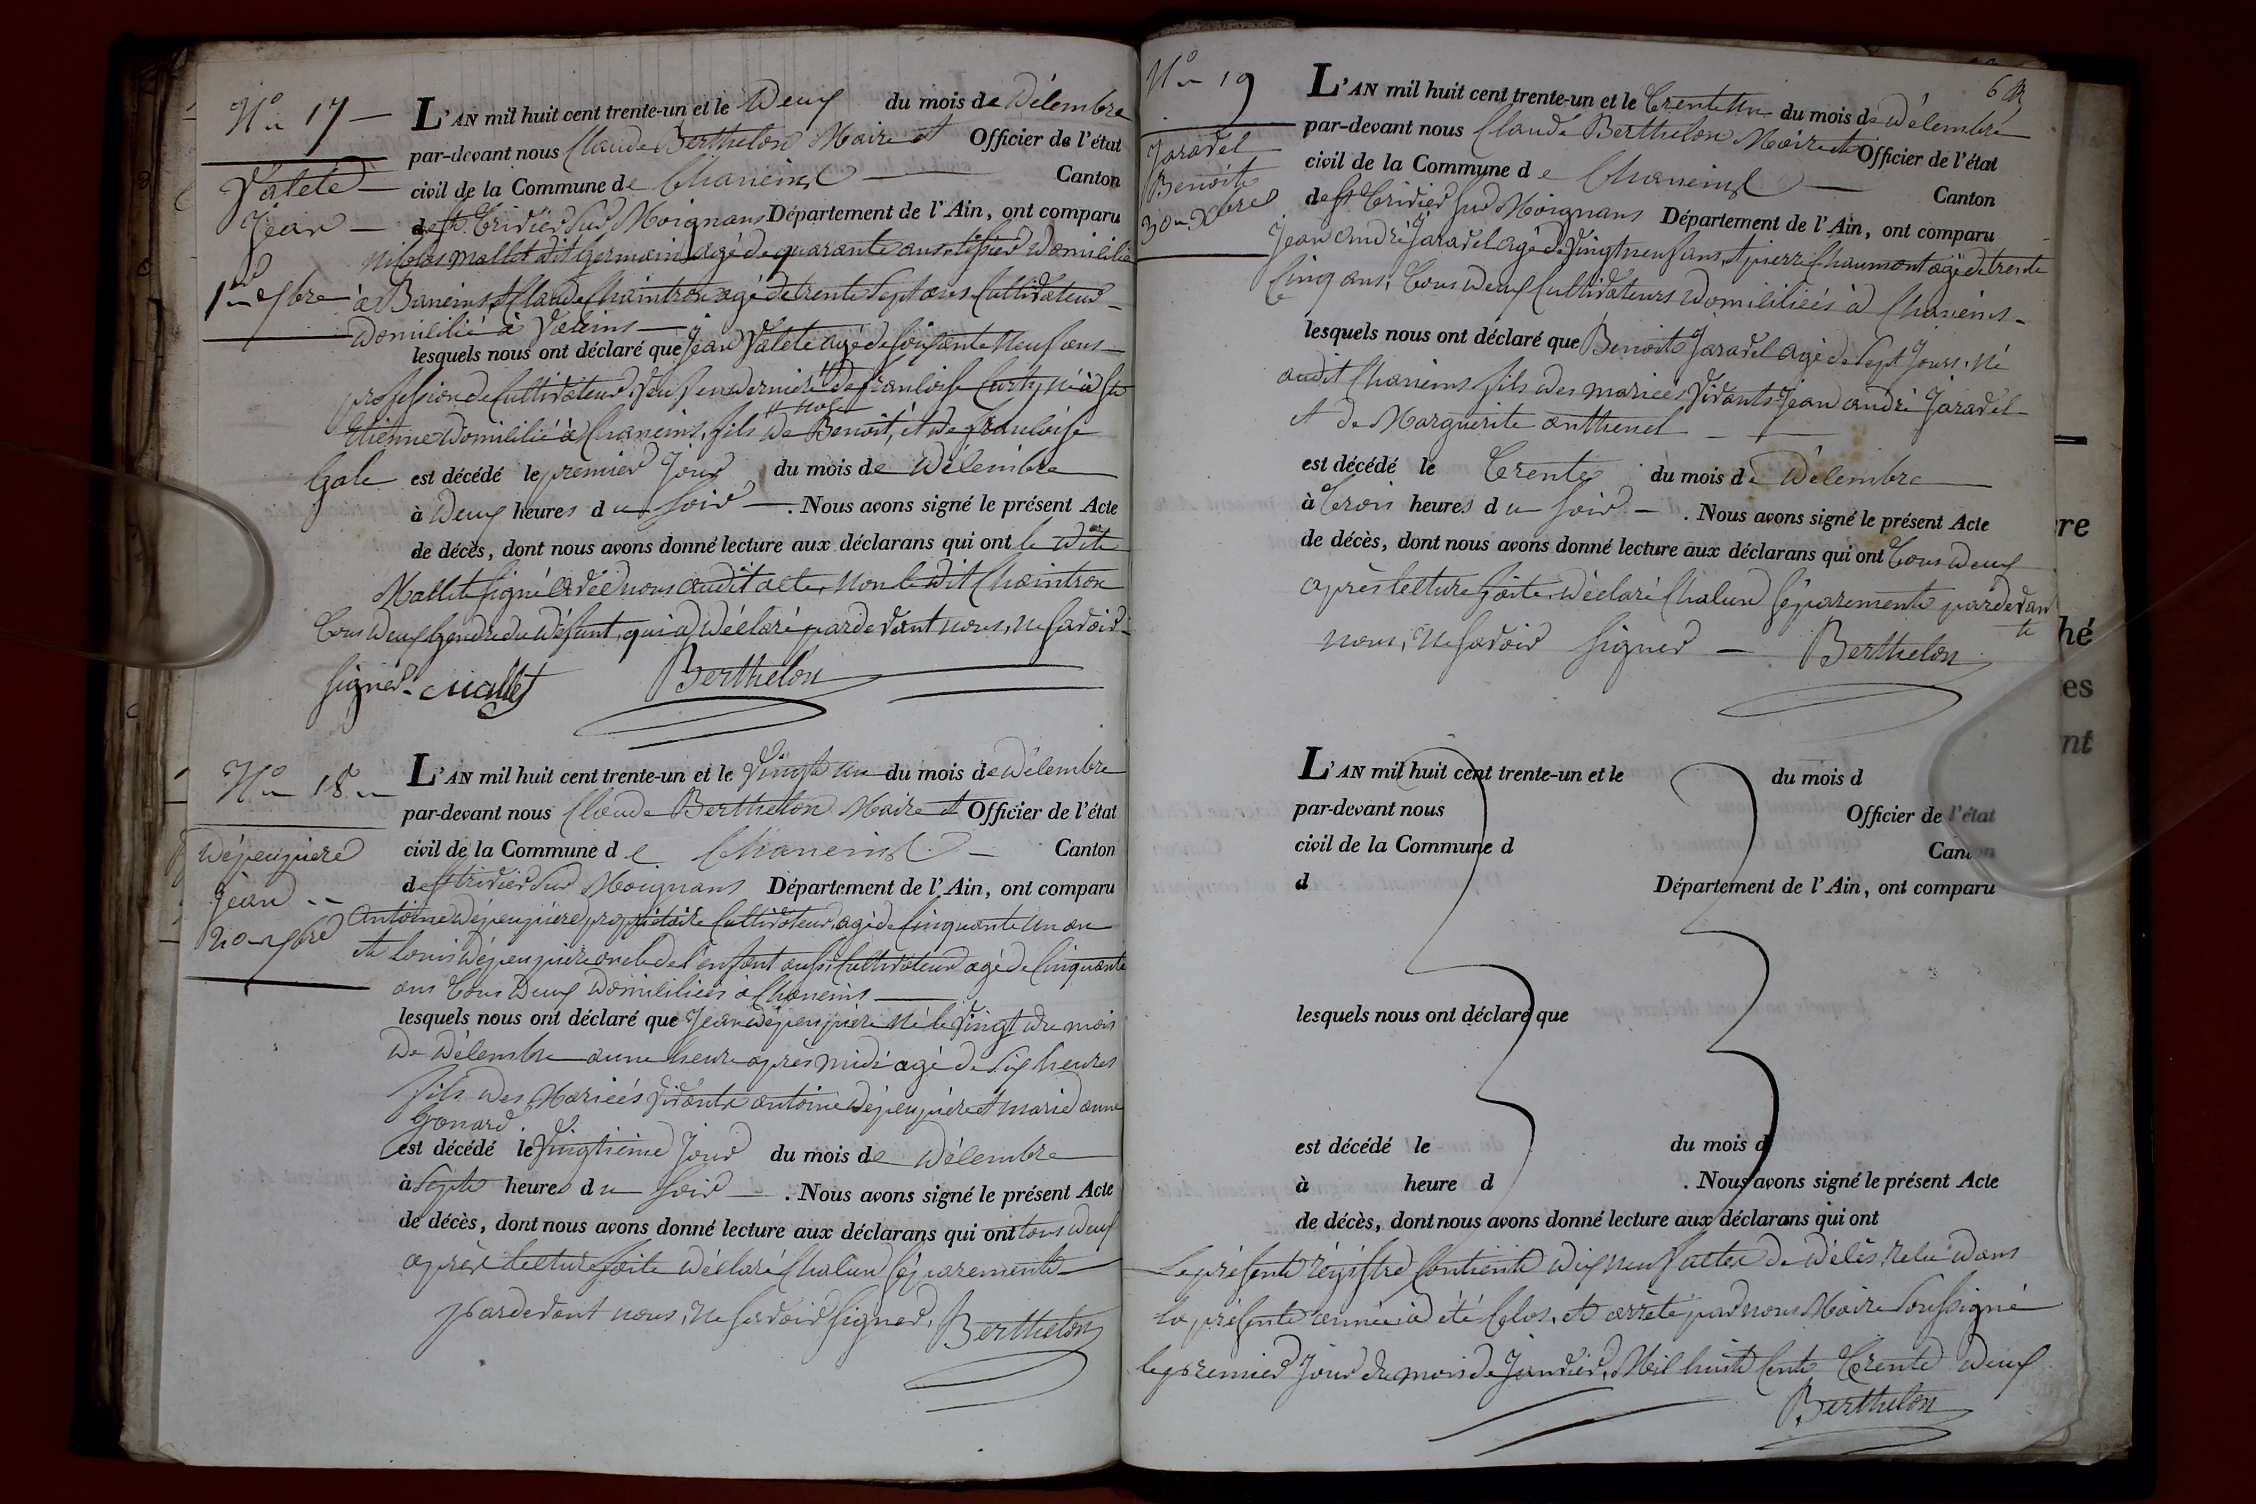 No 17
Valete
Jean
1er Xbre
L'AN mil huit cent trente-un et le Deux du mois de Décembre
par-devant nous Claude Berthelon Maire et Officier de l'état
civil de la Commune de Chaneins Canton
de St Trivier sur Moignans Département de l'Ain, ont comparu
Nicolas Mallet dit Germain agé de quarante ans domicilié
à Baneins et Claude Chaintron agé de trente sept ans Cultivateur
Domicilié à Valeins
lesquels nous ont déclaré que Jean Valete agé de soixante neuf ans
profession de Cultivateur, Veuf en dernière de françoise né à St
Etienne Domicilié à Chaneins, fils de Benoit, et de françoise
Gale est décédé le premier Jour du mois de Décembre
à Deux heures du soir. Nous avons signé le présent Acte
de décès, dont nous avons donné lecture aux déclarans qui ont le dit
Mallet signé avec nous audit acte, non le dit Chaintron
tous deux Gendre du Défunt, qui a déclaré pardevant nous, ne savoir
signer. Mallet Berthelon
No 18
Dépeupiere
Jean
20 Xbre
L'AN mil huit cent trente-un et le Vingt un du mois de Décembre
par-devant nous Claude Berthelon Maire et Officier de l'état
civil de la Commune de Chaneins Canton
de St trivier sur Moignans Département de l'Ain, ont comparu
Antoine Dépeupiere propriétaire Cultivateur, agé de Cinquante un an
et Louis Dépeupiere oncle de l'enfant aussi Cultivateur agé de Cinquante
ans tous deux domiciliés à Chaneins
lesquels nous ont déclaré que Jean Dépeupiere né le Vingt du mois
de Décembre a une heure après midi agé de six heures
fils des Mariés Vivants antoine Dépeupiere et marie anne
Gonard.
est décédé le Vingtième Jour du mois de Décembre
à Sept heures du soir. Nous avons signé le présent Acte
de décès, dont nous avons donné lecture aux déclarans qui ont tous deux
après lecture faite déclaré Chacun séparement
pardevant nous, ne savoir signer. Berthelon
No 19
Jaravel
Benoit
30 Xbre
L'AN mil huit cent trente-un et le Trente un du mois de Décembre
par-devant nous Claude Berthelon Maire et Officier de l'état
civil de la Commune de Chaneins Canton
de St Trivier sur Moignans Département de l'Ain, ont comparu
Jean andré Jaravel agé de Vingt neuf ans, et pierre Chaumont agé de trente
Cinq ans, tous deux Cultivateurs domiciliés à Chaneins
lesquels nous ont déclaré que Benoit Jaravel agé de Sept Jours, né
audit Chaneins fils des mariés Vivants Jean andré Jaravel
et de Marguerite
est décédé le Trente du mois de Décembre
à Trois heures du soir. Nous avons signé le présent Acte
de décès, dont nous avons donné lecture aux déclarans qui ont Tous deux
après lecture faite, déclaré Chacun séparement pardevant
nous, ne savoir signer Berthelon
L'AN mil huit cent trente-un et le du mois d
par-devant nous Officier de l'état
civil de la Commune d Canton
d Département de l'Ain, ont comparu
lesquels nous ont déclaré que
est décédé le du mois d
à heure d . Nous avons signé le présent Acte
de décès, dont nous avons donné lecture aux déclarans qui ont
Le présent régistre Contient dix neuf actes de décès, dans
la présente année a été Clos, et arrêté par nous Maire soussigné
le premier Jour du mois de Janvier, Mil huit Cent Trente deux
Berthelon